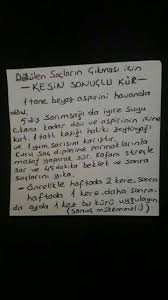 Dökülen Saçların Çıkması için
- KESİN SONUÇLU KÜR -
1 tane beyaz aspirini havanda
döv,
5 diş sarımsağı da iyice suyu
çıkana kadar döv ve aspirinin içine
kat. 1 tatlı kaşığı hakiki zeytinyağı
ve 1 yum. sarısını karıştır.
Kuru saç diplerine parmaklarınla
masaj yaparak sür. Kafanı streçle
sar ve 45 dakika beklet ve sonra
saçlarını yıka.
- Öncelikle haftada 2 kere, sonra
haftada 1 kere, daha sonra
da ayda 1 kez bu kürü uygulayın
(sonuç mükemmel)